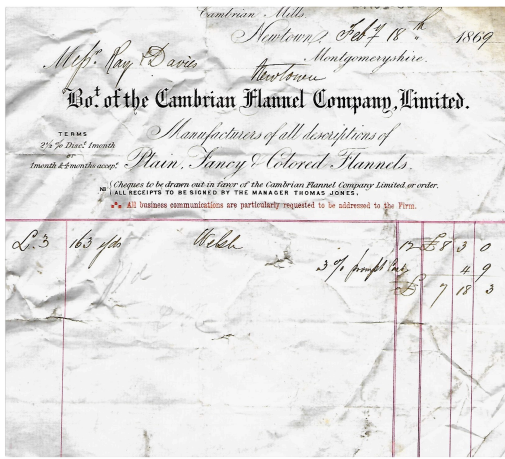 Cambrian Mills,
Newtown, Feby 18th 1869
Montgomeryshire.
Messrs Ray & Davies
Newtown
Bot. of the Cambrian Flannel Company, Limited.
TERMS
2½% Disct. 1month
or
1month & 4months accept.
Manufacturers of all descriptions of
Plain, Fancy & Colored Flannels.
NB Cheques to be drawn out in favor of the Cambrian Flannel Company Limited or order.
ALL RECEIPTS TO BE SIGNED BY THE MANAGER THOMAS JONES.
All business communications are particularly requested to be addressed to the Firm.
L.3 163 yds Welsh 12 £8 3 0
3% prompt Cash 4 9
£ 7 18 3